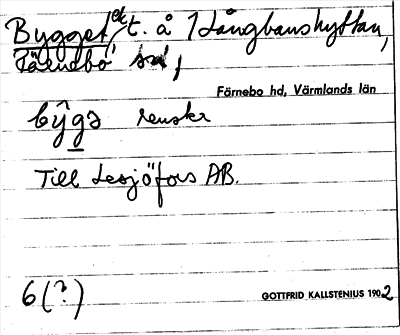 Bygget ek t. å 1 Långbanshyttan,
Färnebo sn,
Färnebo hd, Värmlands län
bŷgə
Till Lesjöfors AB.
6(?)
GOTTFRID KALLSTENIUS 1902